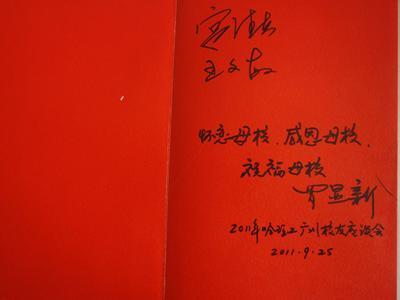 王文友
怀恋母校、感恩母校、
祝福母校
罗显新
2011年哈理工广州校友座谈会
2011.9.25